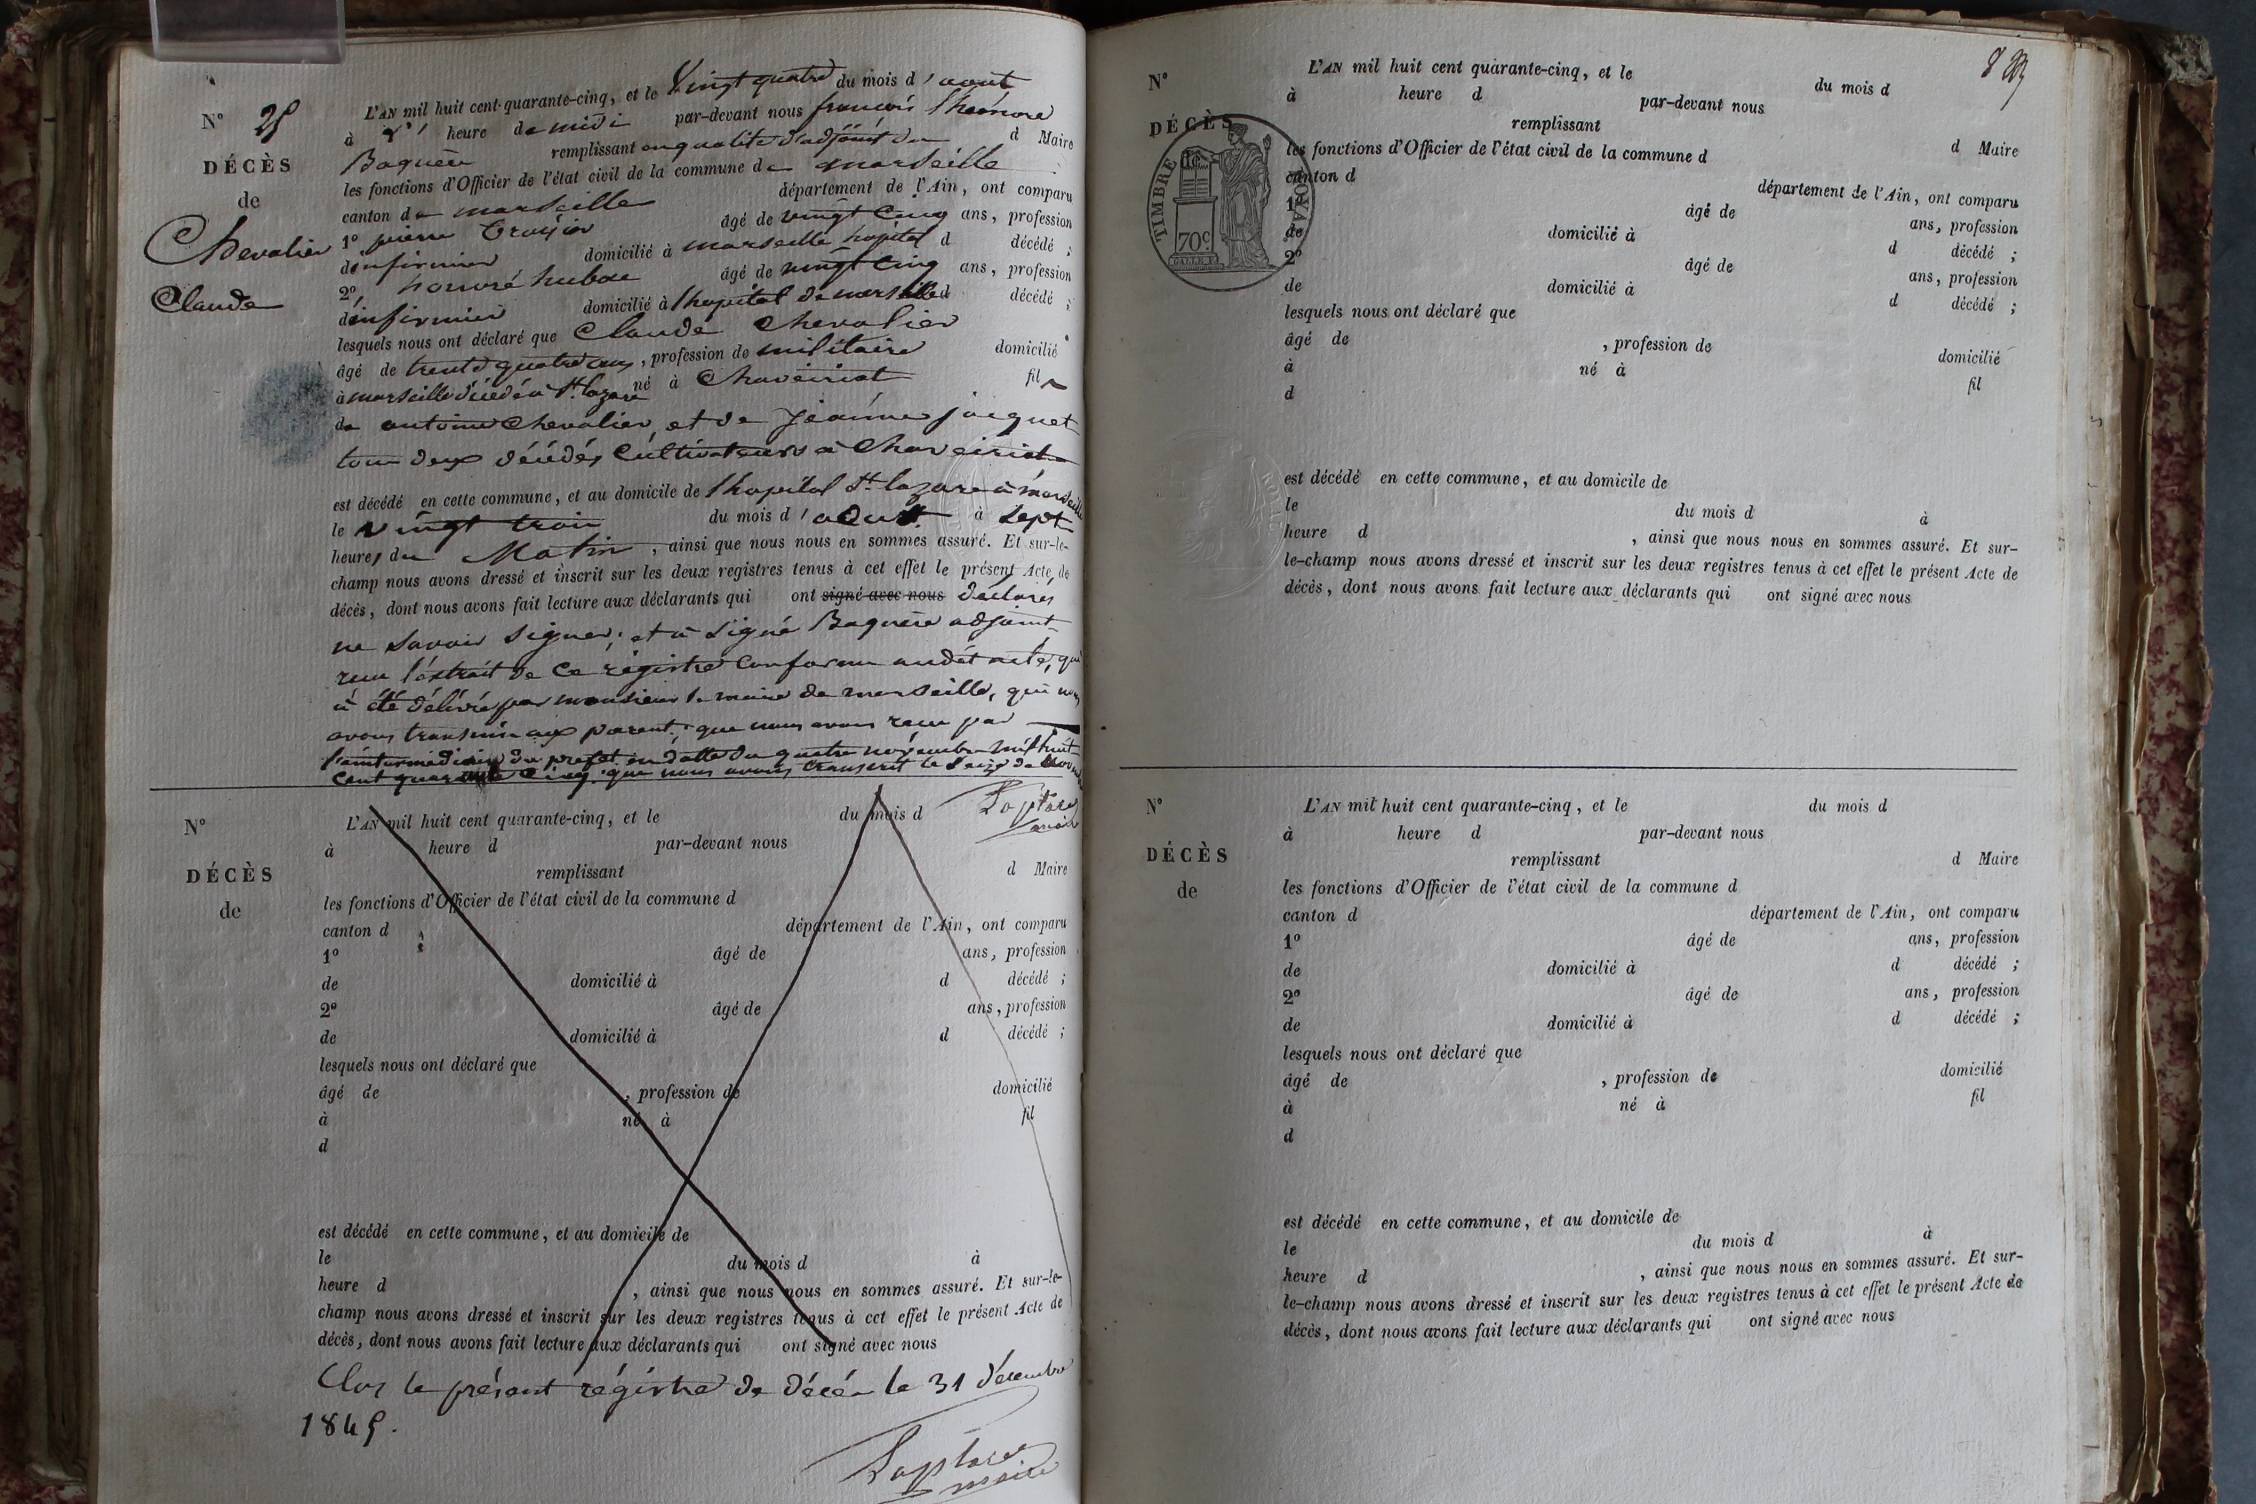 L'AN mil huit cent quarante-cinq, et le Vingt quatre du mois d'aout
N° 25
à heure de midi par-devant nous françois
Baquère remplissant en qualité d'adjoint du d Maire
DÉCÈS
les fonctions d'Officier de l'état civil de la commune de marseille
de
canton de marseille département de l'Ain, ont comparu
Chevalier
1° pierre âgé de vingt cinq ans, profession
d'infirmier domicilié à marseille hopital d décédé ;
Claude
2° honoré âgé de vingt cinq ans, profession
d'infirmier domicilié à l'hopital de marseille d décédé ;
lesquels nous ont déclaré que Claude Chevalier
âgé de trente quatre ans, profession de militaire domicilié
à marseille décédé à St. lazare né à Chaveiriat fils
de antoine Chevalier, et de Jeanne jacquet
tous deux décédés Cultivateurs à Chaveiriat
est décédé en cette commune, et au domicile de l'hopital St. lazare à marseille
le vingt trois du mois d'aout à sept
heures du Matin, ainsi que nous nous en sommes assuré. Et sur-le-
champ nous avons dressé et inscrit sur les deux registres tenus à cet effet le présent Acte de
décès, dont nous avons fait lecture aux déclarants qui ont signé avec nous déclarés
ne savoir signer, et à signé Baquère adjoint
l'extrait de ce régistre conforme audit acte, qui
à été délivré par monsieur le maire de marseille, que nous
avons transmis aux parent. que nous avons recu par
l'intermédiaire du prefet en datte du quatre novembre mil huit
cent quarante cinq. que nous avons transcrit le Seize de
maire
N° L'AN mil huit cent quarante-cinq, et le du mois d
à heure d par-devant nous
DÉCÈS remplissant d Maire
de les fonctions d'Officier de l'état civil de la commune d
canton d département de l'Ain, ont comparu
1° âgé de ans, profession
de domicilié à d décédé ;
2° âgé de ans, profession
de domicilié à d décédé ;
lesquels nous ont déclaré que
âgé de , profession de domicilié
à né à fil
d
est décédé en cette commune, et au domicile de
le du mois d à
heure d , ainsi que nous nous en sommes assuré. Et sur-le-
champ nous avons dressé et inscrit sur les deux registres tenus à cet effet le présent Acte de
décès, dont nous avons fait lecture aux déclarants qui ont signé avec nous
Clos le présent régistre de décés le 31 décembre
1845.
maire
N° L'AN mil huit cent quarante-cinq, et le du mois d
à heure d par-devant nous
DÉCÈS remplissant d Maire
de les fonctions d'Officier de l'état civil de la commune d
canton d département de l'Ain, ont comparu
1° âgé de ans, profession
de domicilié à d décédé ;
2° âgé de ans, profession
de domicilié à d décédé ;
TIMBRE ROYAL
70c.
lesquels nous ont déclaré que
âgé de , profession de domicilié
à né à fil
d
est décédé en cette commune, et au domicile de
le du mois d à
heure d , ainsi que nous nous en sommes assuré. Et sur-
le-champ nous avons dressé et inscrit sur les deux registres tenus à cet effet le présent Acte de
décès, dont nous avons fait lecture aux déclarants qui ont signé avec nous
N° L'AN mil huit cent quarante-cinq, et le du mois d
à heure d par-devant nous
DÉCÈS remplissant d Maire
de les fonctions d'Officier de l'état civil de la commune d
canton d département de l'Ain, ont comparu
1° âgé de ans, profession
de domicilié à d décédé ;
2° âgé de ans, profession
de domicilié à d décédé ;
lesquels nous ont déclaré que
âgé de , profession de domicilié
à né à fil
d
est décédé en cette commune, et au domicile de
le du mois d à
heure d , ainsi que nous nous en sommes assuré. Et sur-
le-champ nous avons dressé et inscrit sur les deux registres tenus à cet effet le présent Acte de
décès, dont nous avons fait lecture aux déclarants qui ont signé avec nous